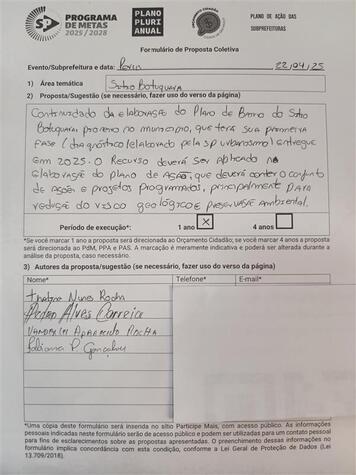 PROGRAMA
DE METAS
2025/2028
PLANO
PLURI
ANUAL
ORÇAMENTO CIDADÃO
PLANO DE AÇÃO DAS
SUBPREFEITURAS
Formulário de Proposta Coletiva
Evento/Subprefeitura e data: Perus 22/04/25
1) Área temática Sítio Botuquara
2) Proposta/Sugestão (se necessário, fazer uso do verso da página)
Continuidade da elaboração do Plano de Bairro do Sítio
Botuquara, pioneiro no município, que terá sua primeira
fase (diagnóstico) elaborado pela SP Urbanismo) entregue
em 2025. O Recurso deverá ser aplicado na
elaboração do plano de ação, que deverá conter o conjunto
de ações e projetos programados, principalmente para
redução do risco geológico e preservação ambiental.
Período de execução*: 1 ano X 4 anos
*Se você marcar 1 ano a proposta será direcionada ao Orçamento Cidadão; se você marcar 4 anos a proposta
será direcionada ao PdM, PPA e PAS. A marcação é meramente indicativa e poderá ser alterada durante a
análise da proposta, caso necessário.
3) Autores da proposta/sugestão (se necessário, fazer uso do verso da página)
Nome* Telefone* E-mail*
Thayna Nunes Rocha
Pedro Alves Correira
Vanderlei Aparecido Rocha
Fabiana P. Gonçalves
*Uma cópia deste formulário será inserida no sítio Participe Mais, com acesso público. As informações
pessoais indicadas neste formulário serão de acesso público e podem ser utilizadas para um contato pessoal
para fins de esclarecimentos sobre as propostas apresentadas. O preenchimento dessas informações no
formulário implica concordância com esta condição, conforme a Lei Geral de Proteção de Dados (Lei
13.709/2018).